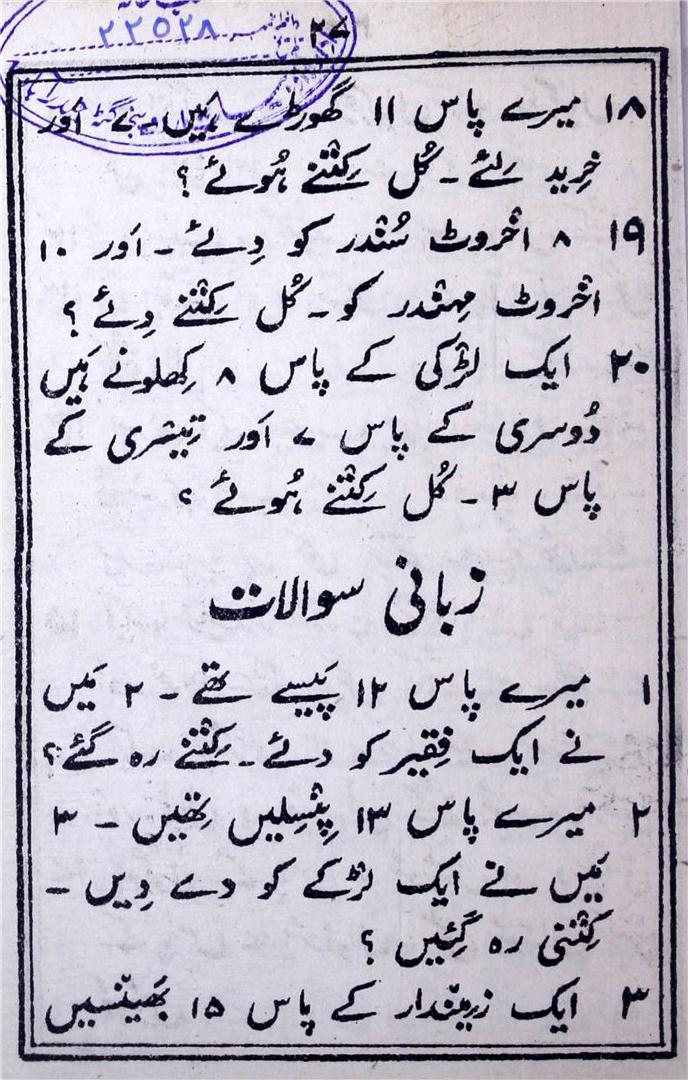 ۲۷
۲۲۵۲۸
۱۸ میرے پاس ۱۱ گھوڑے ہیں۔ ۷ اَور
خرِید لئے۔ کُل کِتْنے ہُوئے ؟
۱۹ ۸ اخْروٹ سُنْدر کو دِئے۔ اَور ۱۰
اخْروٹ مہِنْدر کو۔ کُل کِتْنے دِئے ؟
۲۰ ایک لڑْکی کے پاس ۸ کِھلونے ہَیں
دُوسری کے پاس ۷ اَور تِیسْری کے
پاس ۳۔ کُل کِتْنے ہُوئے ؟
زبانی سوالات
۱ میرے پاس ۱۲ پَیسے تھے۔ ۲ مَیں
نے ایک فقِیر کو دئے۔ کِتْنے رہ گئے؟
۲ میرے پاس ۱۳ پِنْسِلیں تِھیں۔ ۳
مَیں نے ایک لڑْکے کو دے دِیں۔
کِتْنی رہ گئِیں ؟
۳ ایک زمِیْندار کے پاس ۱۵ بَھینْسیں